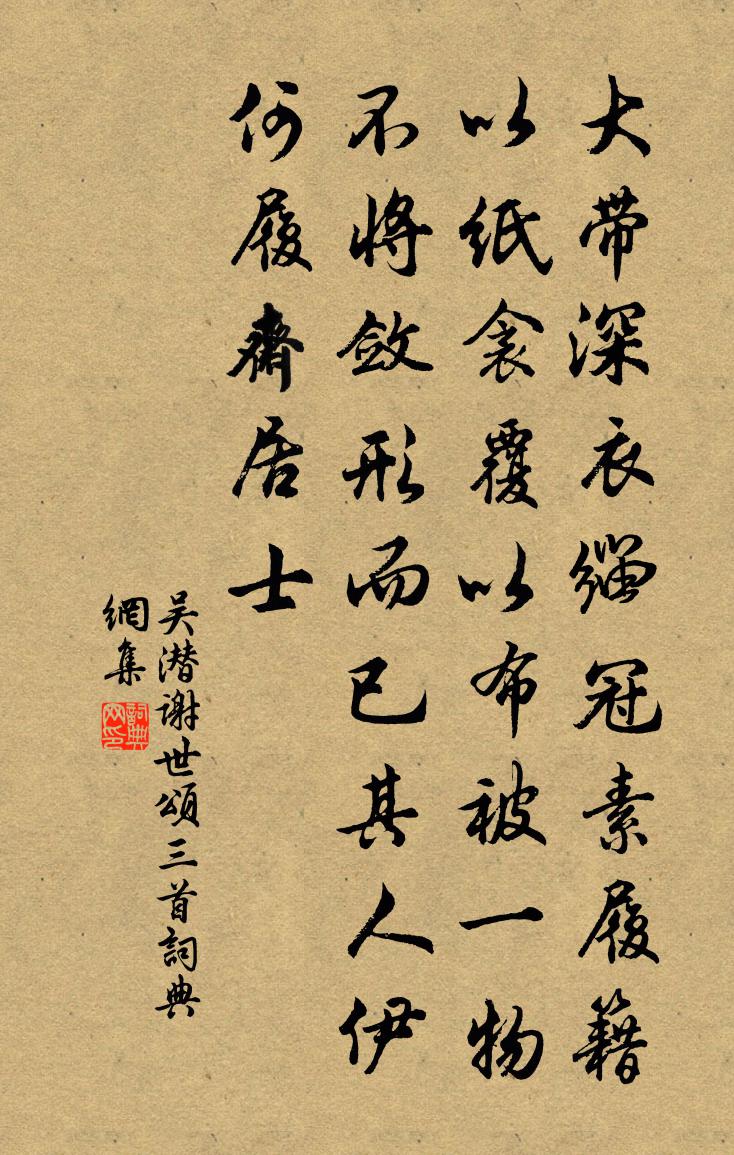 大带深衣缁冠素履籍
以纸衾覆以布被一物
不将敛形而已其人伊
何履斋居士
吴潜谢世颂三首詞典
網集
詞典
网印